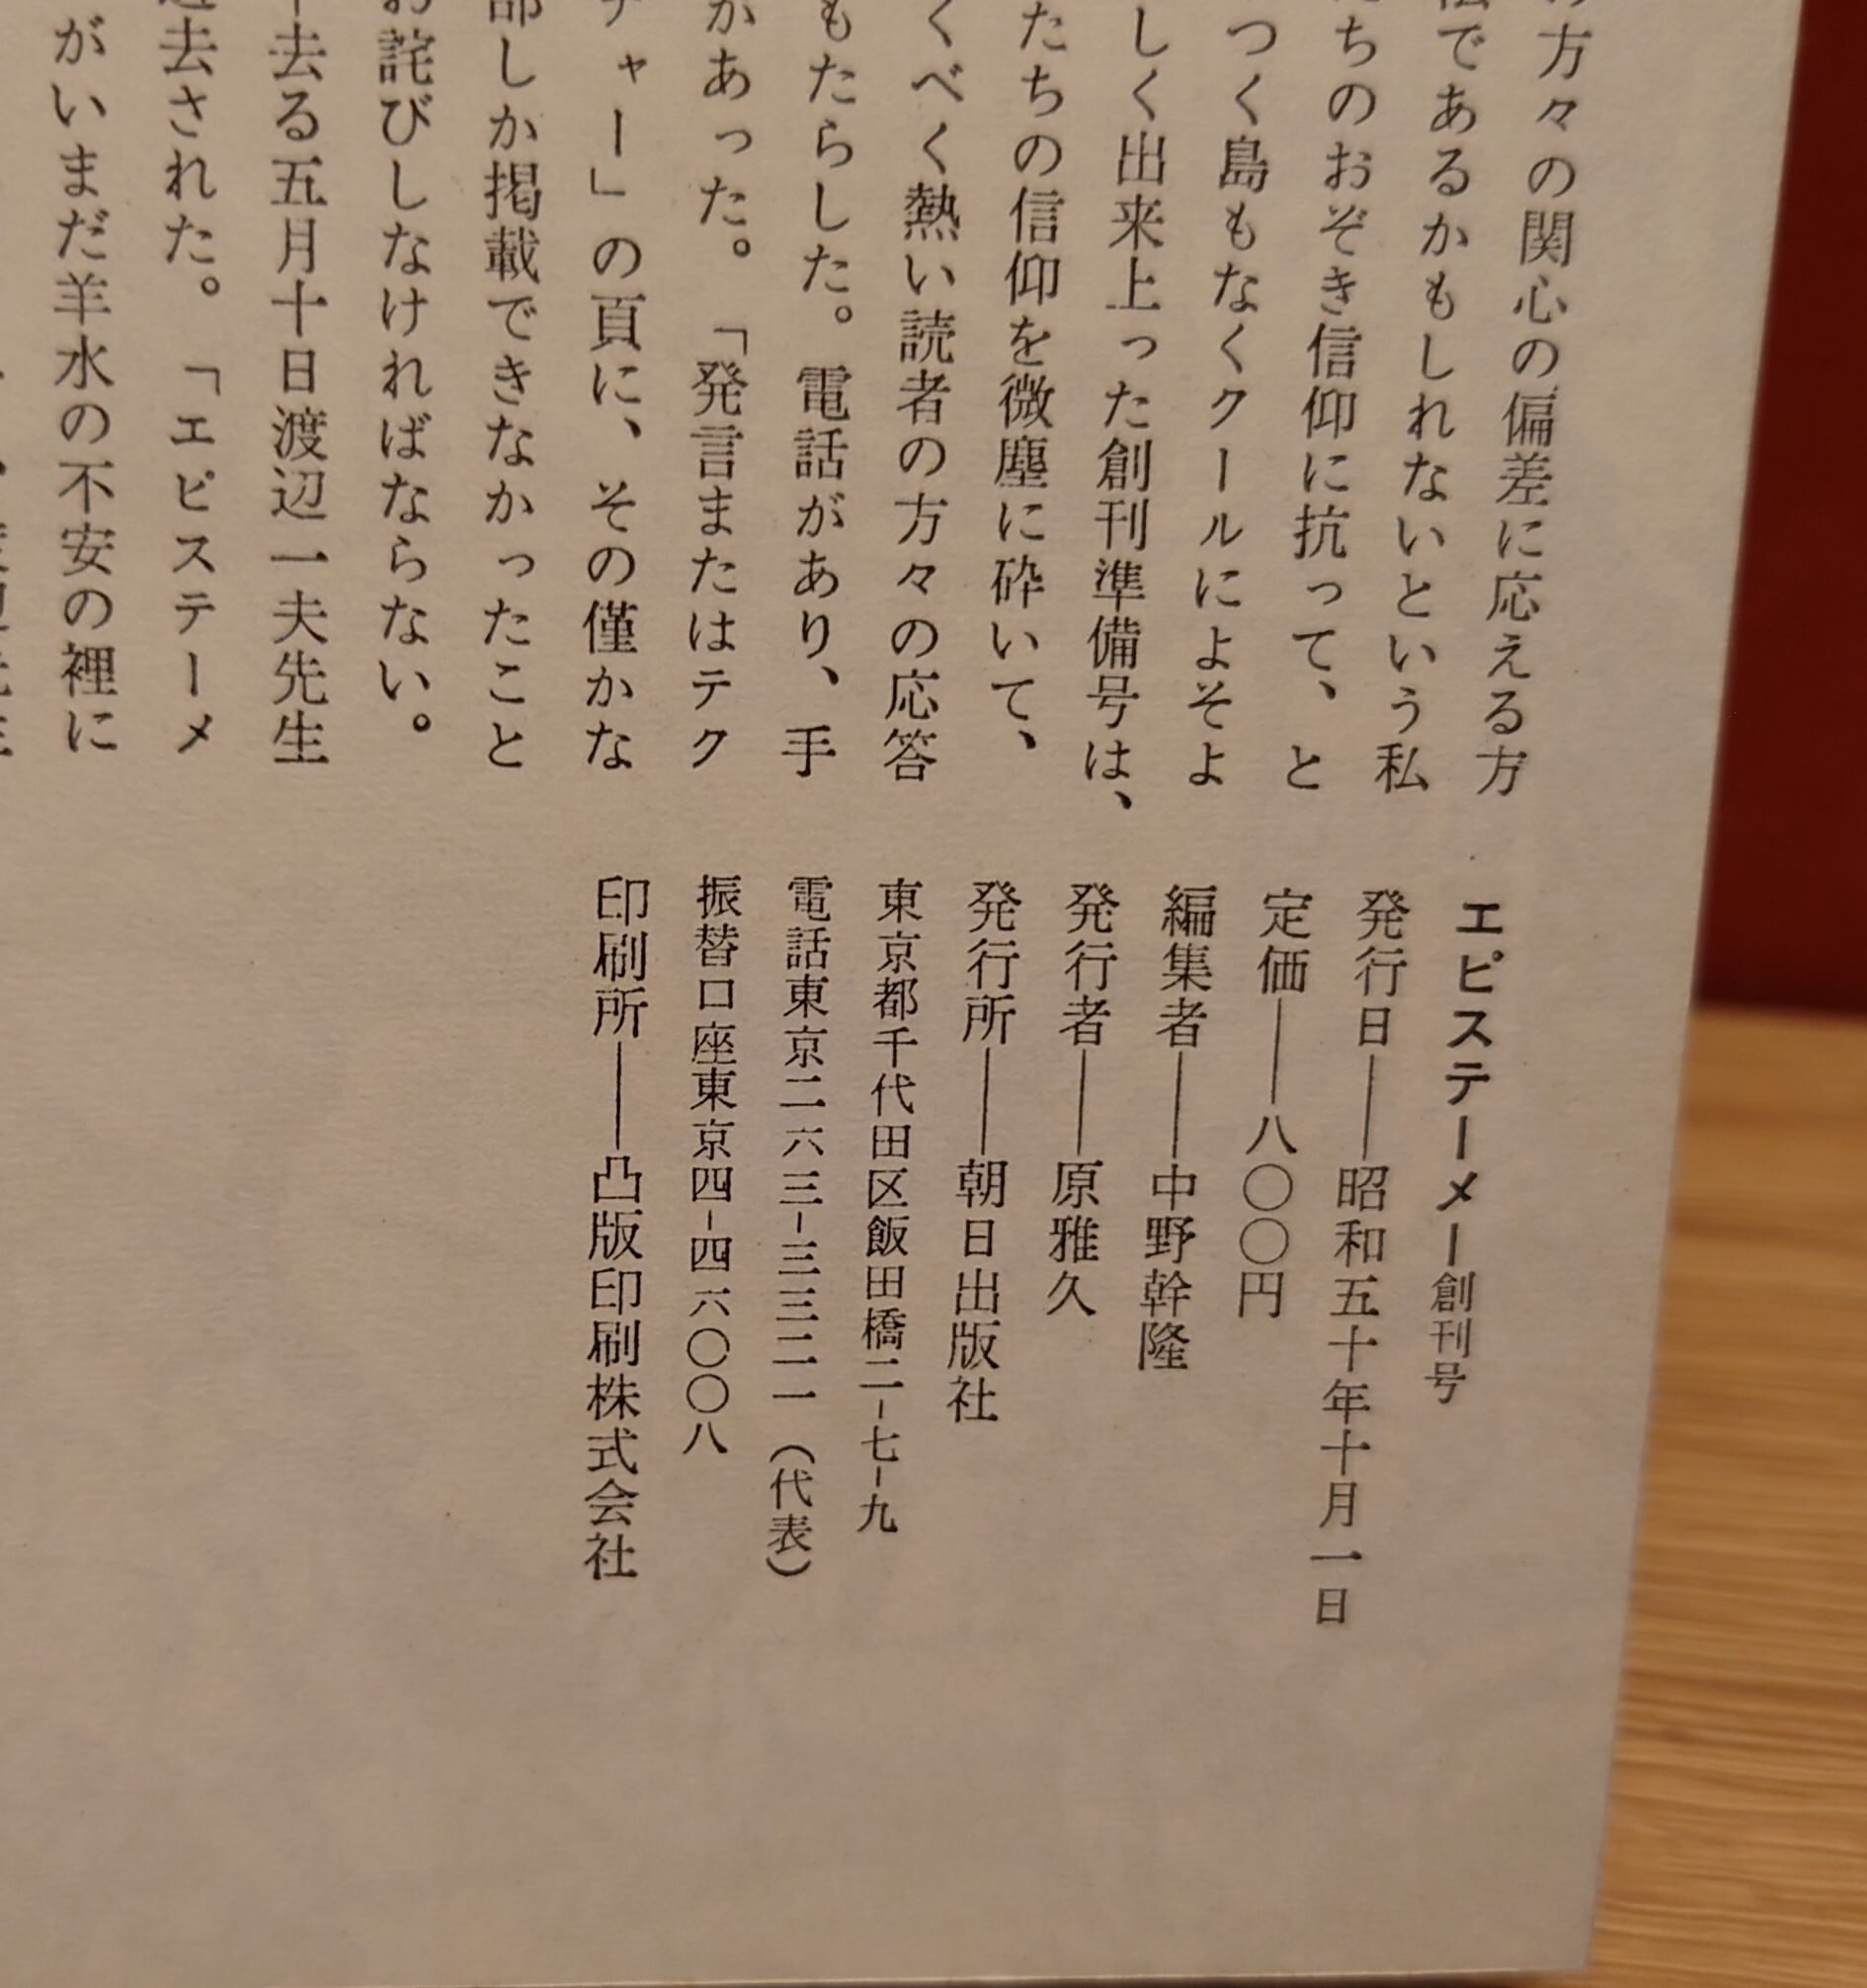 方々の関心の偏差に応える方
であるかもしれないという私
ちのおぞき信仰に抗って、と
つく島もなくクールによそよ
しく出来上った創刊準備号は、
たちの信仰を微塵に砕いて、
くべく熱い読者の方々の応答
もたらした。電話があり、手
があった。「発言またはテク
チャー」の頁に、その僅かな
部しか掲載できなかったこと
お詫びしなければならない。
去る五月十日渡辺一夫先生
去された。「エピステーメ
がいまだ羊水の不安の裡に
エピステーメー創刊号
発行日――昭和五十年十月一日
定価――八〇〇円
編集者――中野幹隆
発行者――原雅久
発行所――朝日出版社
東京都千代田区飯田橋二-七-九
電話東京二六三-三三二一（代表）
振替口座東京四-四六〇〇八
印刷所――凸版印刷株式会社